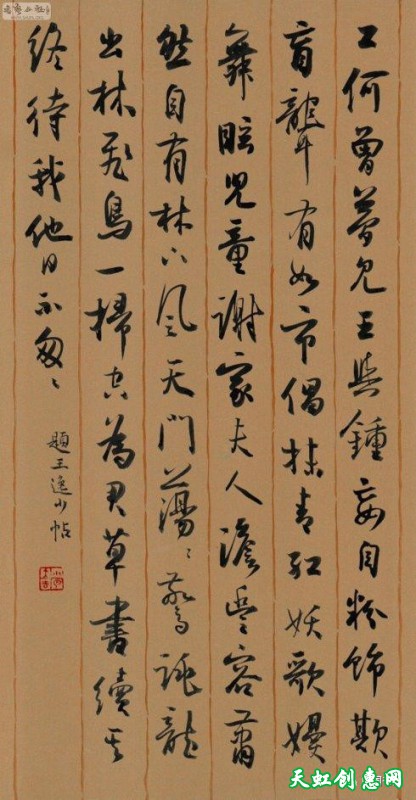 工何曾夢見王與鍾妄自粉飾欺
盲聾有如市倡抹青紅妖歌嫚
舞眩兒童謝家夫人澹豐容蕭
然自有林下風天門蕩々驚跳龍
出林飛鳥一掃空為君草書續其
終待我他日不匆々
題王逸少帖
天虹创惠网